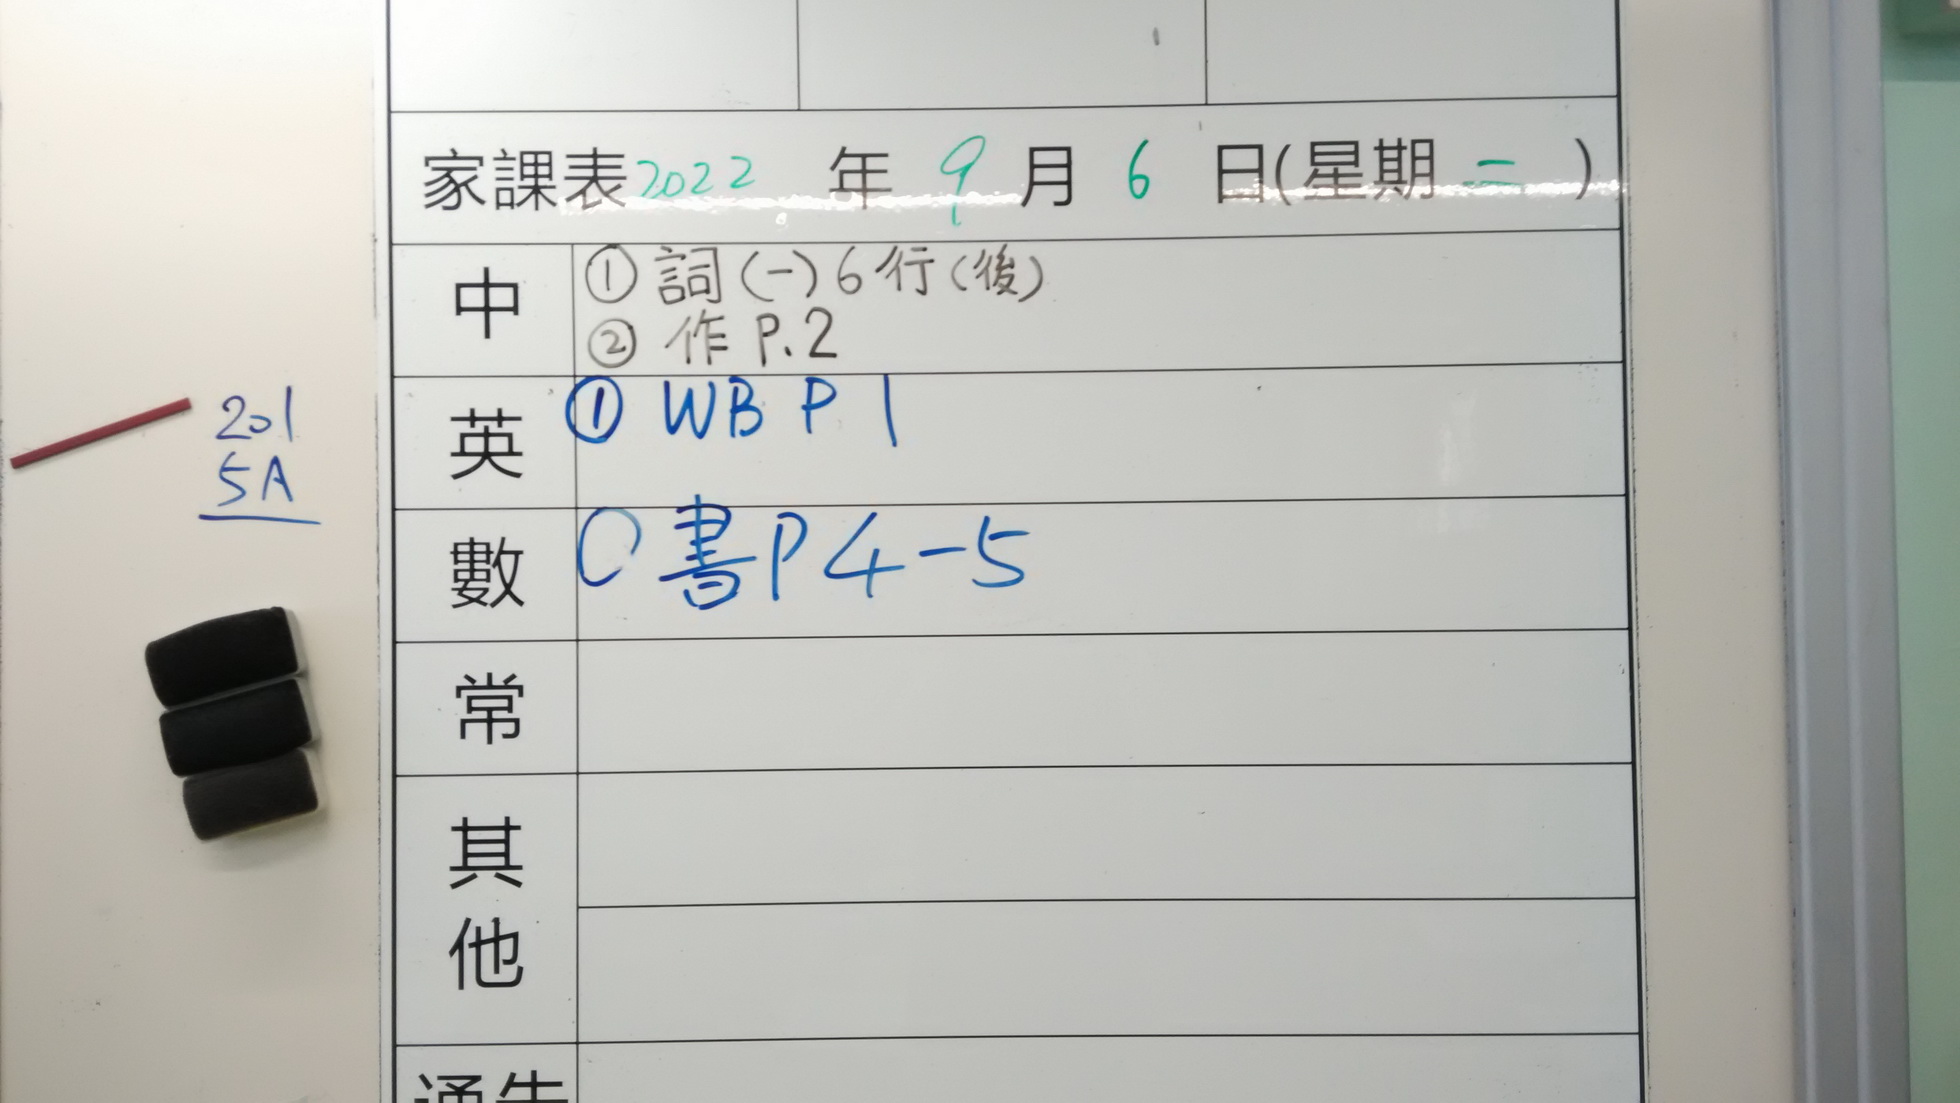 家課表2022 年 9 月 6 日(星期 二 )
中
① 詞(一)6行(後)
② 作 P.2
英
① WB P 1
201
5A
數
○ 書P4-5
常
其他
通告